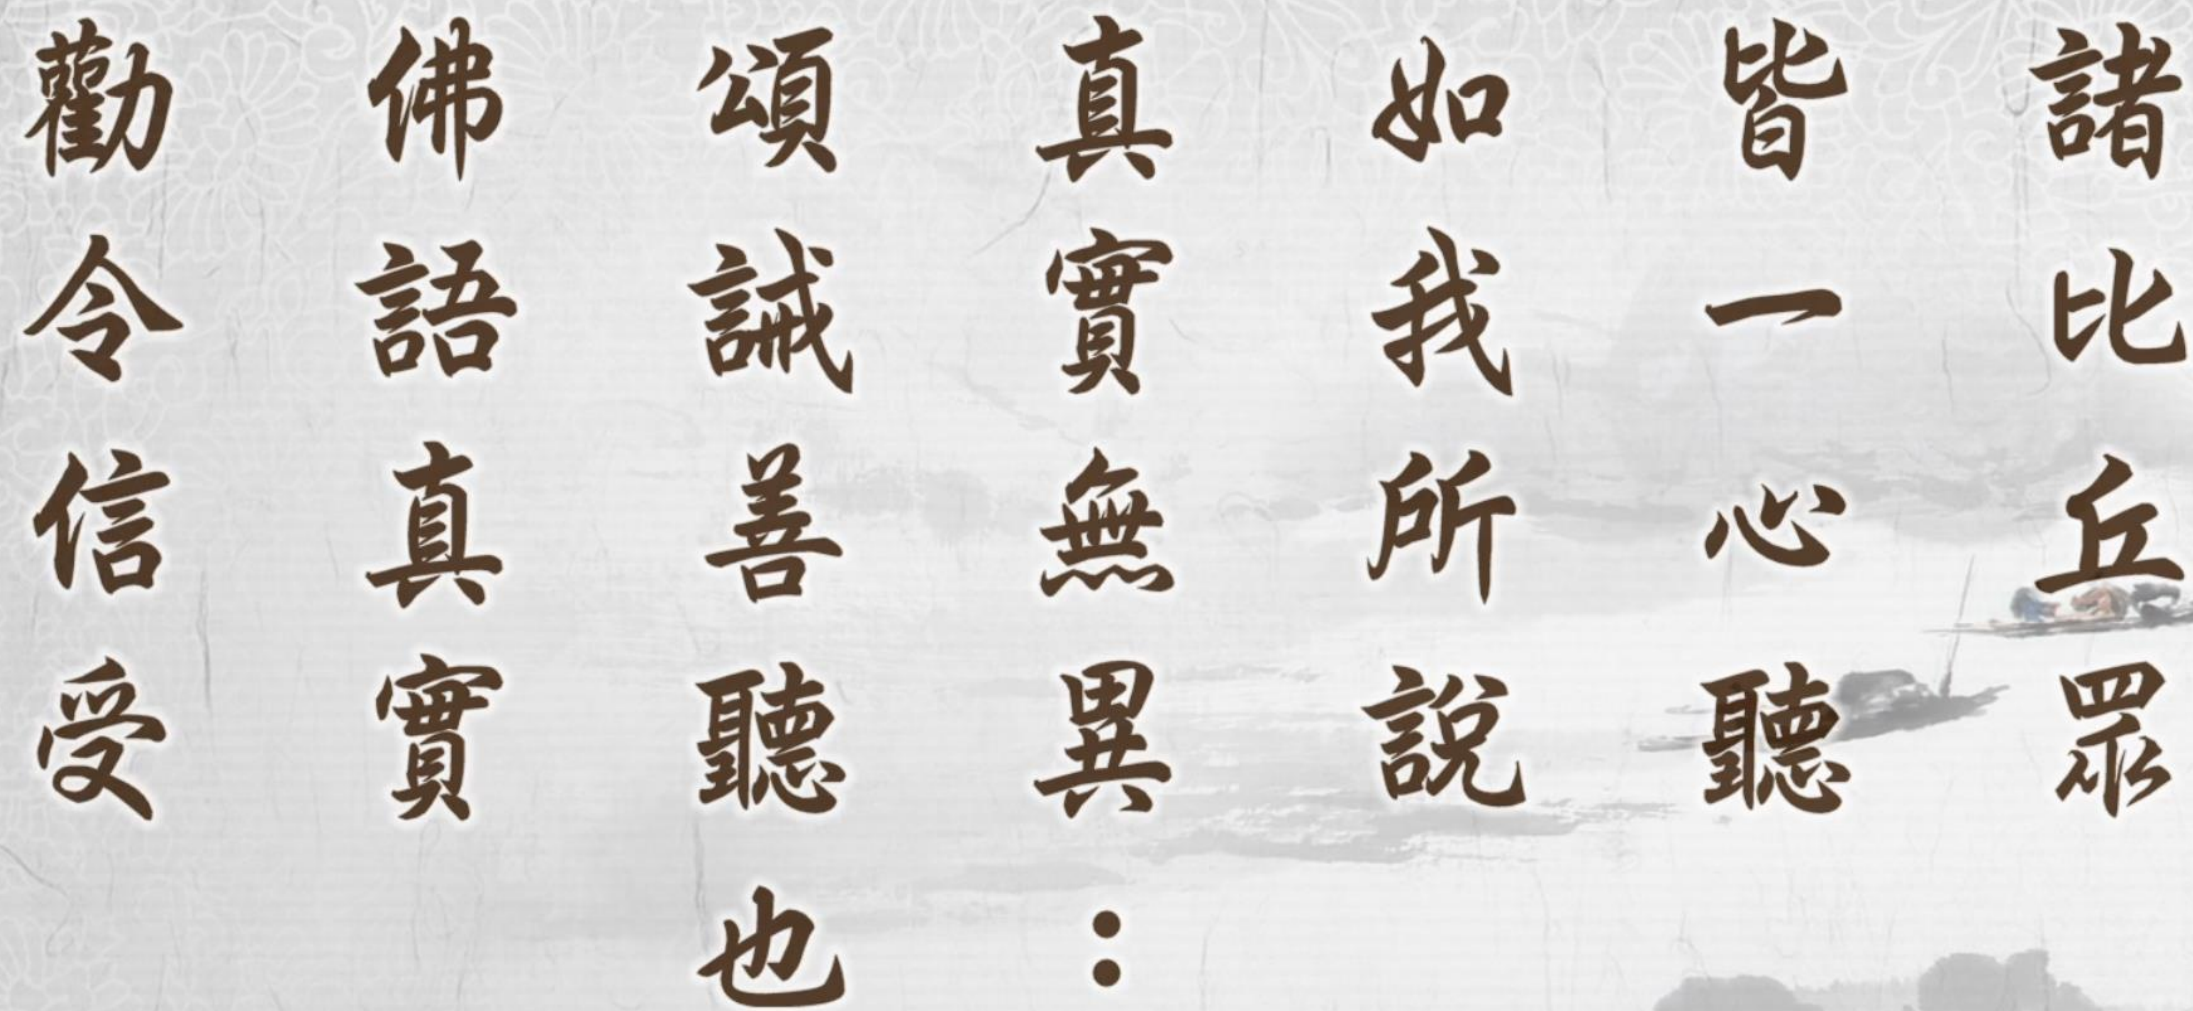 諸比丘眾
皆一心聽
如我所說
真實無異：
頌誡善聽也
佛語真實
勸令信受